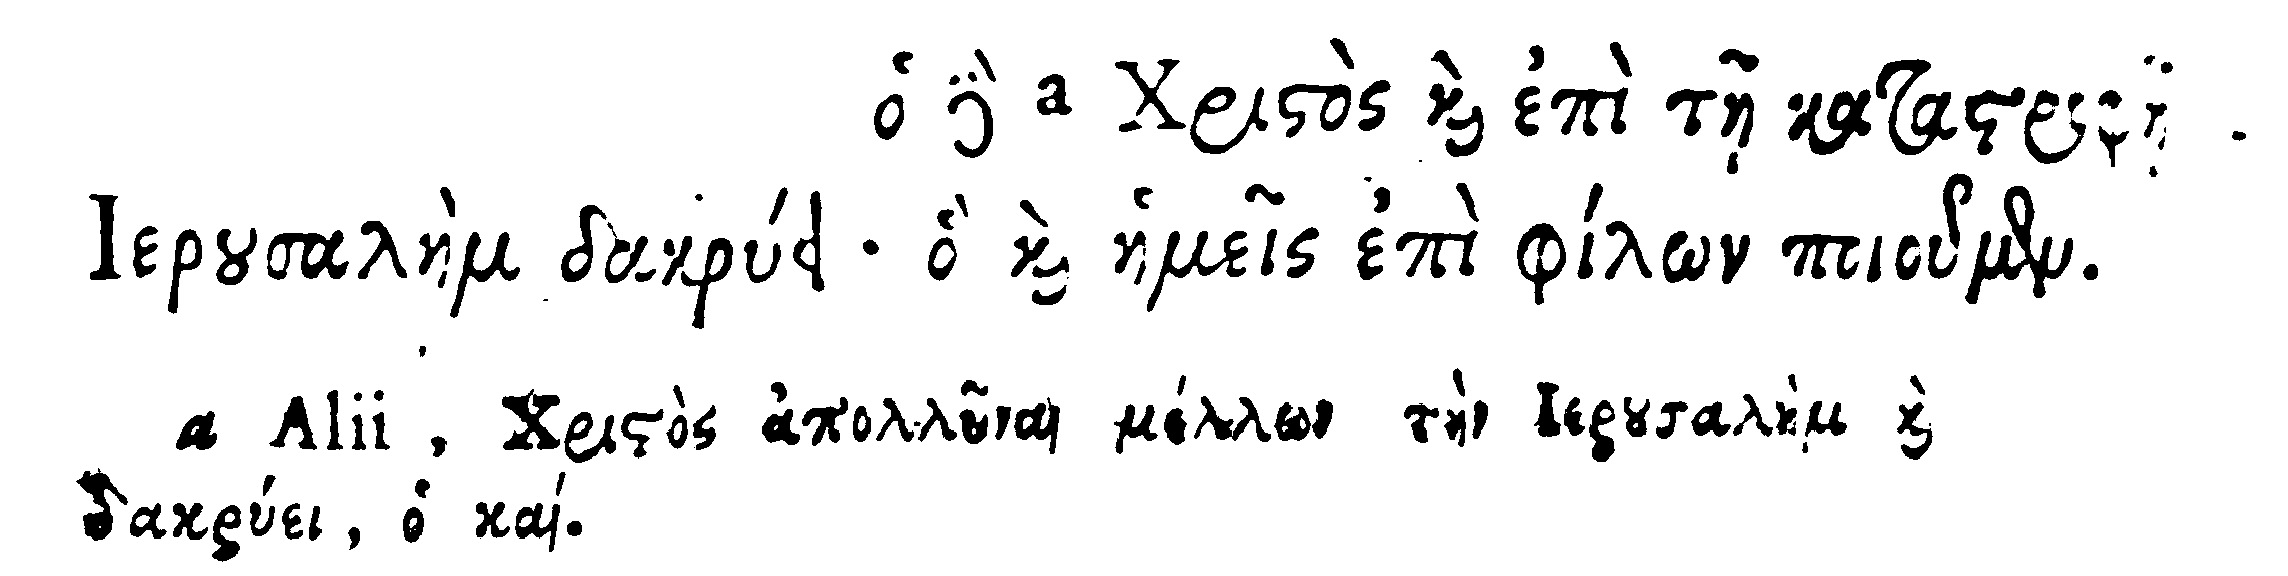 ὁ a Χριϛὸς ϗ̀ ἐπὶ τῇ καταϛροφῇ .
Ιερȣσαλὴμ δακρύει · ὃ ϗ̀ ἡμεῖς ἐπὶ φίλων ποιοῦμεν.
a Alii , Χριϛὸς ἀπολλῦναι μέλλων τὴν Ιερȣσαλὴμ ϗ̀
δακρύει , ὁ καί.